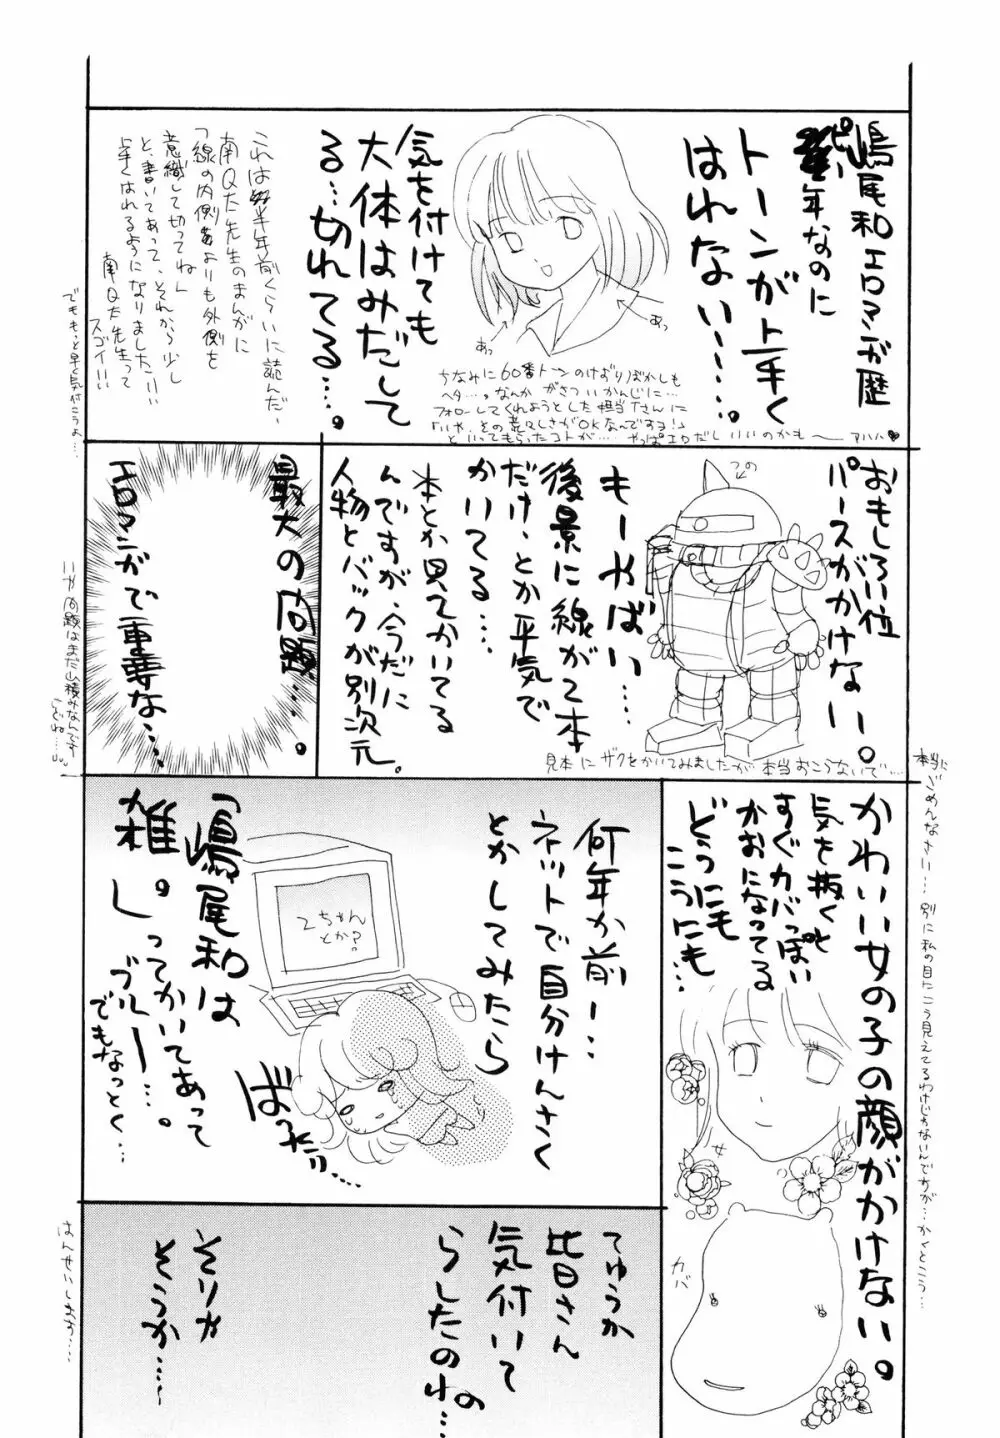 嶋尾和エロマンガ歴
ピー年なのに
トーンが上手く
はれない……。
気を付けても
大体はみだして
る…。切れてる…。
あっ
あっ
ちなみに60番トーンのけずりぼかしも
ヘタ…。なんか がさついかんじに…
フォローしてくれようとした担当Tさんに
「いや、その荒々しさがOKなんですヨ!」
といってもらったコトが…. やっぱエロだしいいのかも〜 アハハ♥
これは半年前くらいに読んだ、
南Q太先生のまんがに
「線の内側よりも外側を
意識して切ってね」
と、書いてあって、それから少し
上手くはれるようになりました!!!
南Q太先生って
スゴイ!!!
でももっと早く気付こうよ…。
おもしろい位
パースがかけない。
つの
もーやばい…。
後景に線が2本
だけ、とか平気で
かいてる…。
本とか見てかいてる
んですが、今だに
人物とバックが別次元。
見本にザクをかいてみましたが 本当おこらないで……
本当にごめんなさい…
別に私の目にこう見えてるわけじゃないんですが…かくとこう…
最大の問題…。
エロマンガで重要な…、
いや問題はまだ山積みなんですけどね…。
かわいい女の子の顔がかけない。
気を抜くと
すぐカバっぽい
かおになってる
どうにも
こうにも…
カバ
何年か前ー…
ネットで自分けんさく
とかしてみたら
2ちゃん
とか?
「嶋尾和は
雑。」ってかいてあって
ブルー…。
でもなっとく…
ばったり…
てゆうか
皆さん
気付いて
らしたのね…
そりゃ
そうか…〜
はんせいしまお…